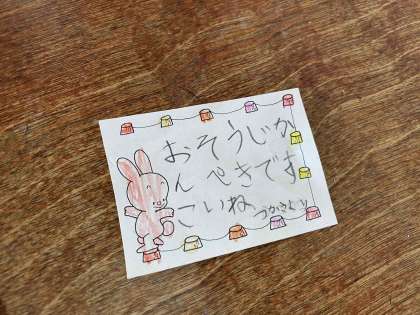 おそうじか
んぺきです
ごいね つかさより